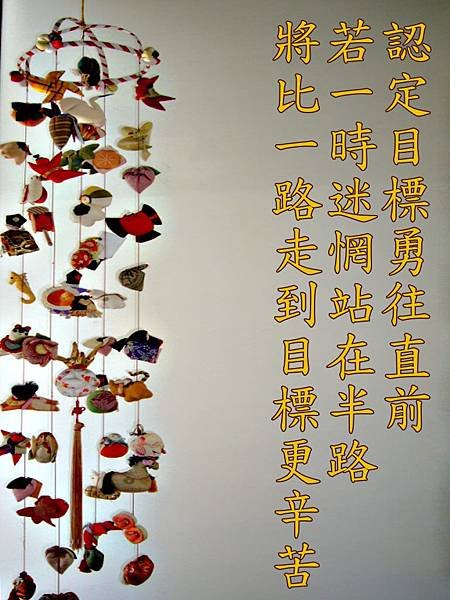 認定目標勇往直前
若一時迷惘站在半路
將比一路走到目標更辛苦